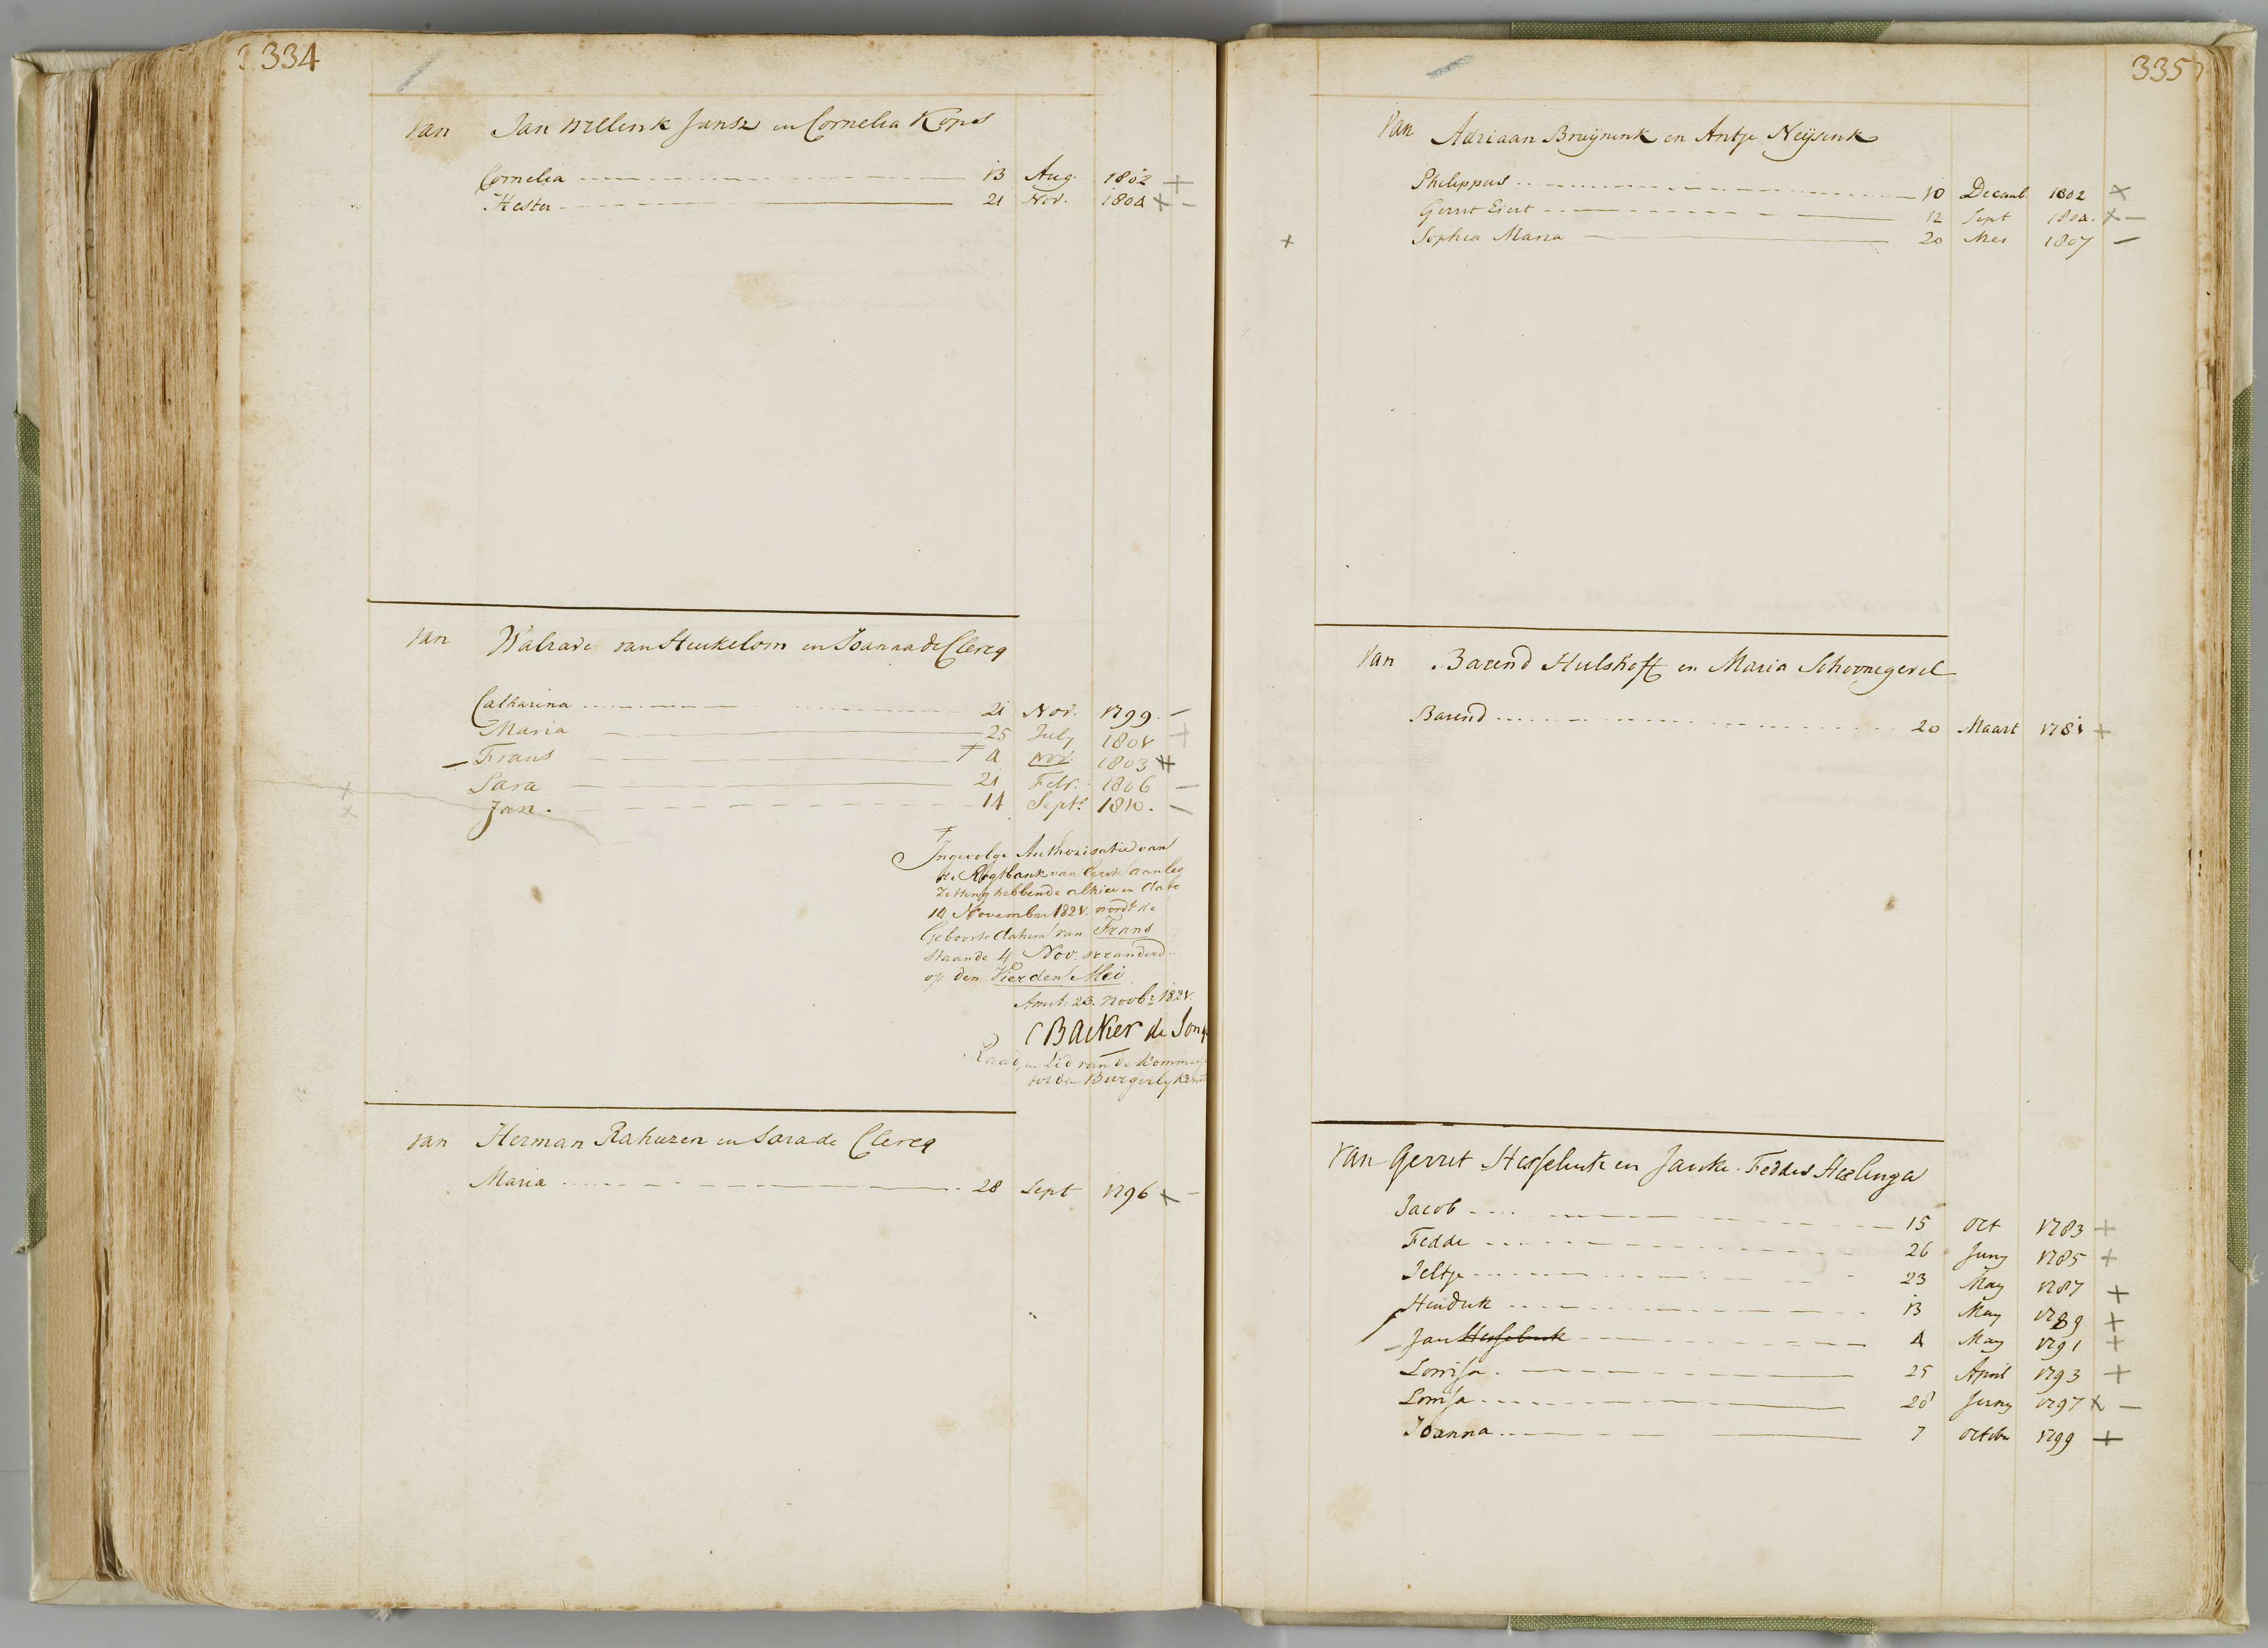 334
Van Jan Willink Jansz en Cornelia Kops
Cornelia 13 Aug. 1802 +
Hester 21 Nov. 1804 x -
Van Walrave van Heukelom en Joanna de Clercq
Catharina 21 Nov. 1799 -
Maria 25 July 1801 +
- Frans ‡ 4 Nov. 1803
Sara 21 Febr. 1806 -
Jan. 14 Sept. 1810. -
‡
Ingevolge Authorisatie van
de Regtbank van Eerste aanleg
Zitting hebbende alhier in dato
14 November 1821. wordt de
Geboorte datum van Frans
staande 4 Nov. veranderd
op den Vierden Mei
Amst. 23. novbr 1821.
Backer de Jong
Raad, en Lid van de Kommis
tot den Burgerlyk
Van Herman Rahuzen en Sara de Clercq
Maria 28 Sept 1796 x -
335
Van Adriaan Bruijnink en Antje Neijsink
Philippus 10 Decemb. 1802 x
Gerrit Evert 12 Sept 1804. x -
+ Sophia Maria 20 Mei 1807 -
Van Barend Hulshoff en Maria Schoonegevel
Barend 20 Maart 1781 +
Van Gerrit Hesselink en Janke Feddes Heslinga
Jacob 15 Oct 1783 +
Fedde 26 Juny 1785 +
Jeltje 23 May 1787 +
Hendrik 13 May 1789 +
- Jan Hesselink 4 May 1791 +
Louisa 25 April 1793 +
Louisa 28 Juny 1797 x -
Joanna 7 Octobr 1799 +